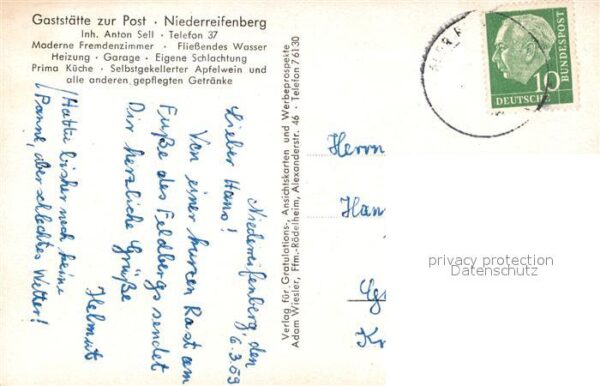 Gaststätte zur Post · Niederreifenberg
Inh. Anton Sell · Telefon 37
Moderne Fremdenzimmer · Fließendes Wasser
Heizung · Garage · Eigene Schlachtung
Prima Küche · Selbstgekelterter Apfelwein und
alle anderen gepflegten Getränke
Niederreifenberg, den
6.3.59
Lieber Hans!
Von einer kurzen Rast am
Fuße des Feldbergs sendet
Dir herzliche Grüße
Helmut
/Hatte bisher noch keine
/Panne, aber schlechtes Wetter!
Verlag für Gratulations-, Ansichtskarten und Werbeprospekte
Adam Wiesler, Ffm.-Rödelheim, Alexanderstr. 46 · Telefon 76130
10
DEUTSCHE
BUNDESPOST
Herrn
Han
Kr
privacy protection
Datenschutz